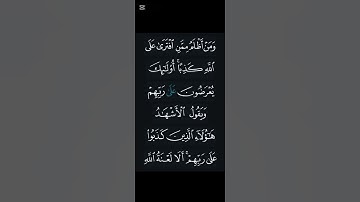 وَمَنۡ أَظۡلَمُ مِمَّنِ ٱفۡتَرَىٰ عَلَى
ٱللَّهِ كَذِبًاۚ أُوْلَٰٓئِكَ
يُعۡرَضُونَ عَلَىٰ رَبِّهِمۡ
وَيَقُولُ ٱلۡأَشۡهَٰدُ
هَٰٓؤُلَآءِ ٱلَّذِينَ كَذَبُواْ
عَلَىٰ رَبِّهِمۡۚ أَلَا لَعۡنَةُ ٱللَّهِ